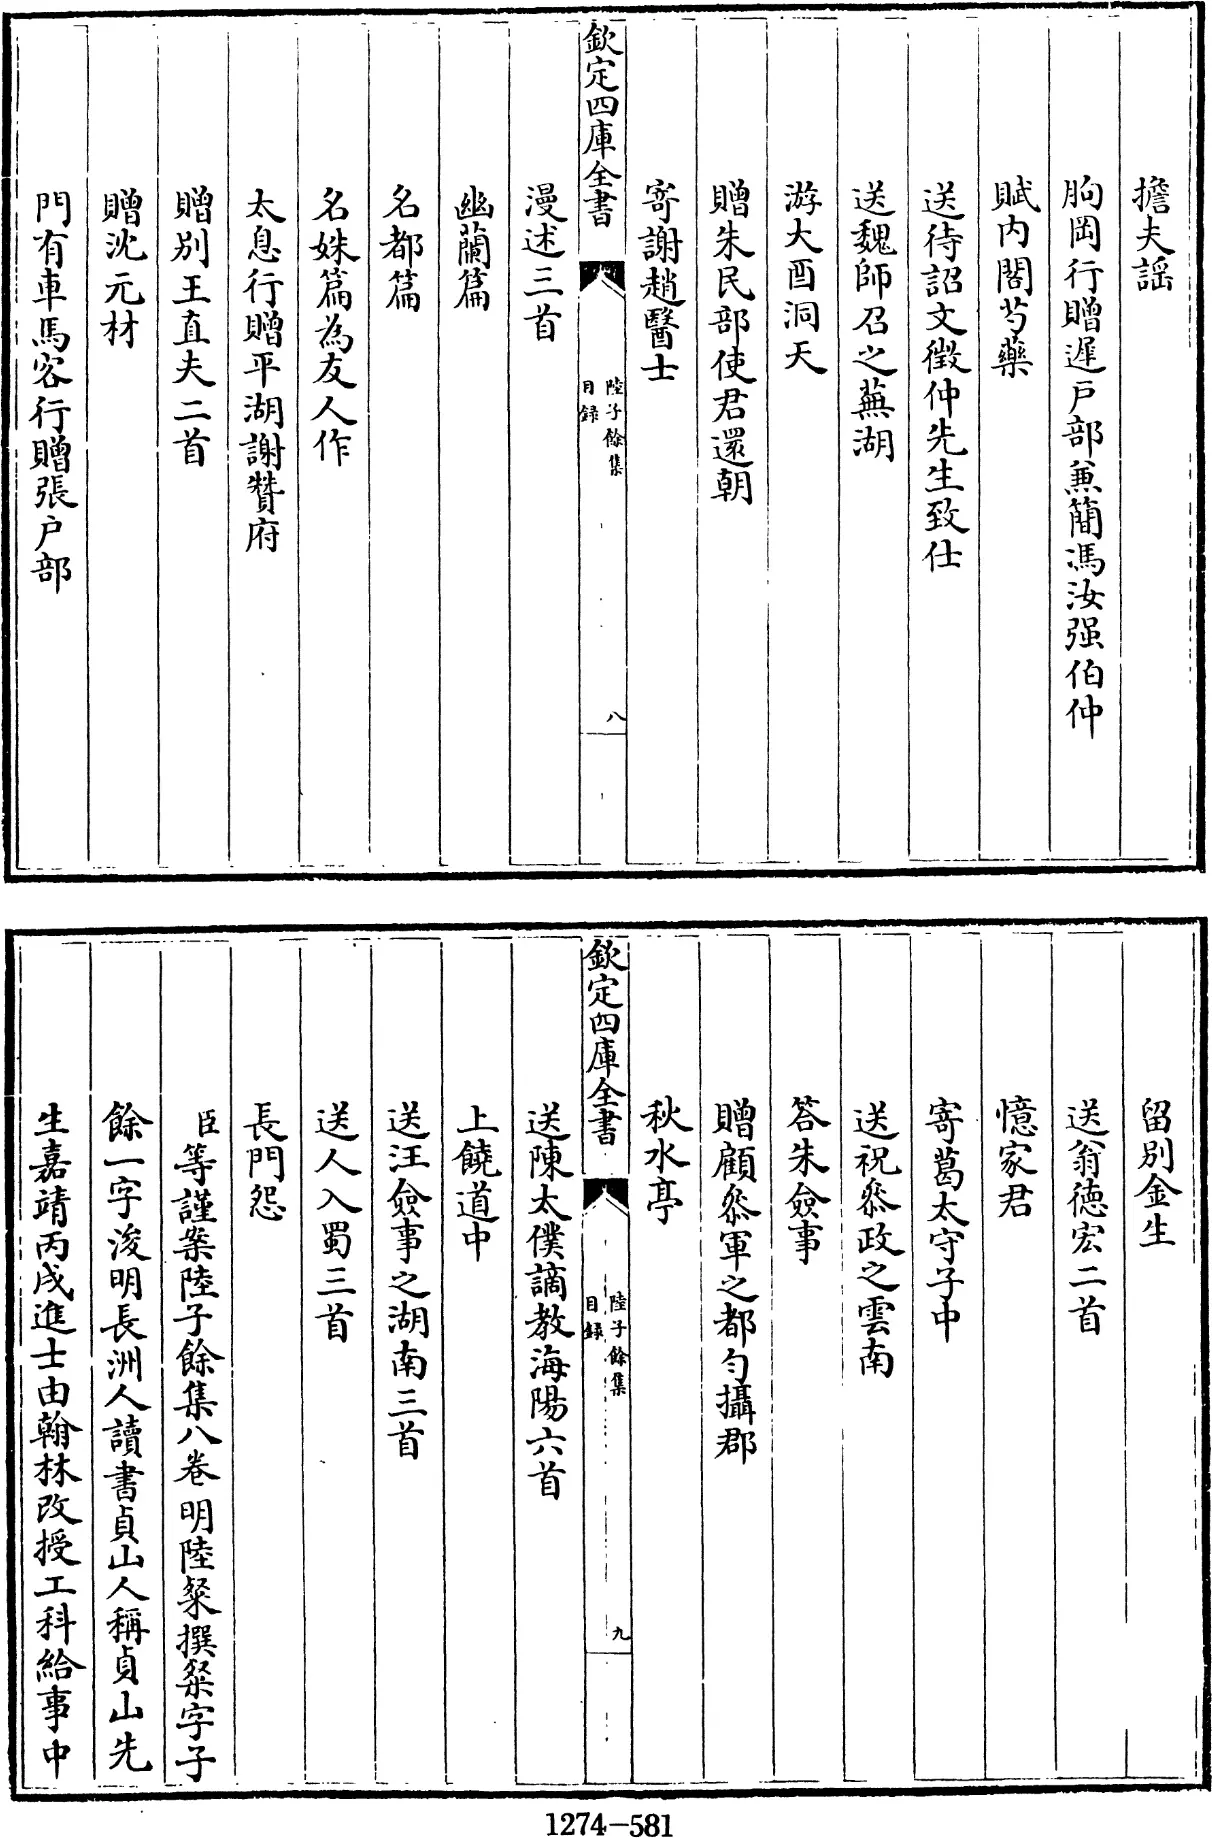 擔夫謡
胊岡行贈遲戶部兼簡馮汝强伯仲
賦内閣芍藥
送待詔文徴仲先生致仕
送魏師召之蕪湖
游大酉洞天
贈朱民部使君還朝
寄謝趙醫士
欽定四庫全書
陸子餘集
目録
八
漫述三首
幽蘭篇
名都篇
名姝篇為友人作
太息行贈平湖謝贊府
贈别王直夫二首
贈沈元材
門有車馬客行贈張戶部
留别金生
送翁德宏二首
憶家君
寄葛太守子中
送祝叅政之雲南
答朱僉事
贈顧叅軍之都匀攝郡
秋水亭
欽定四庫全書
陸子餘集
目録
九
送陳太僕謫教海陽六首
上饒道中
送汪僉事之湖南三首
送人入蜀三首
長門怨
臣等謹案陸子餘集八卷明陸粲撰粲字子
餘一字浚明長洲人讀書貞山人稱貞山先
生嘉靖丙戌進士由翰林改授工科給事中
1274-581